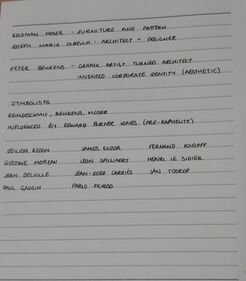 KOLOMAN MOSER - FURNITURE AND PATTERN
JOSEPH MARIA OLBRICH - ARCHITECT + DESIGNER
PETER BEHRENS - GRAPHIC ARTIST TURNED ARCHITECT
INVENTED CORPORATE IDENTITY (AESTHETIC)
SYMBOLISTS
BEHRENS, MOSER
INFLUENCED BY EDWARD BURNE JONES (PRE-RAPHAELITE)
ODILON REDON JAMES ENSOR FERNAND KNOPFF
GUSTAVE MOREAU LEON SPILLIAERT HENRI LE SIDIER
JEAN DELVILLE JEAN-JOSEF CARRIÈS JAN TOOROP
PAUL GAUGIN PABLO PICASSO